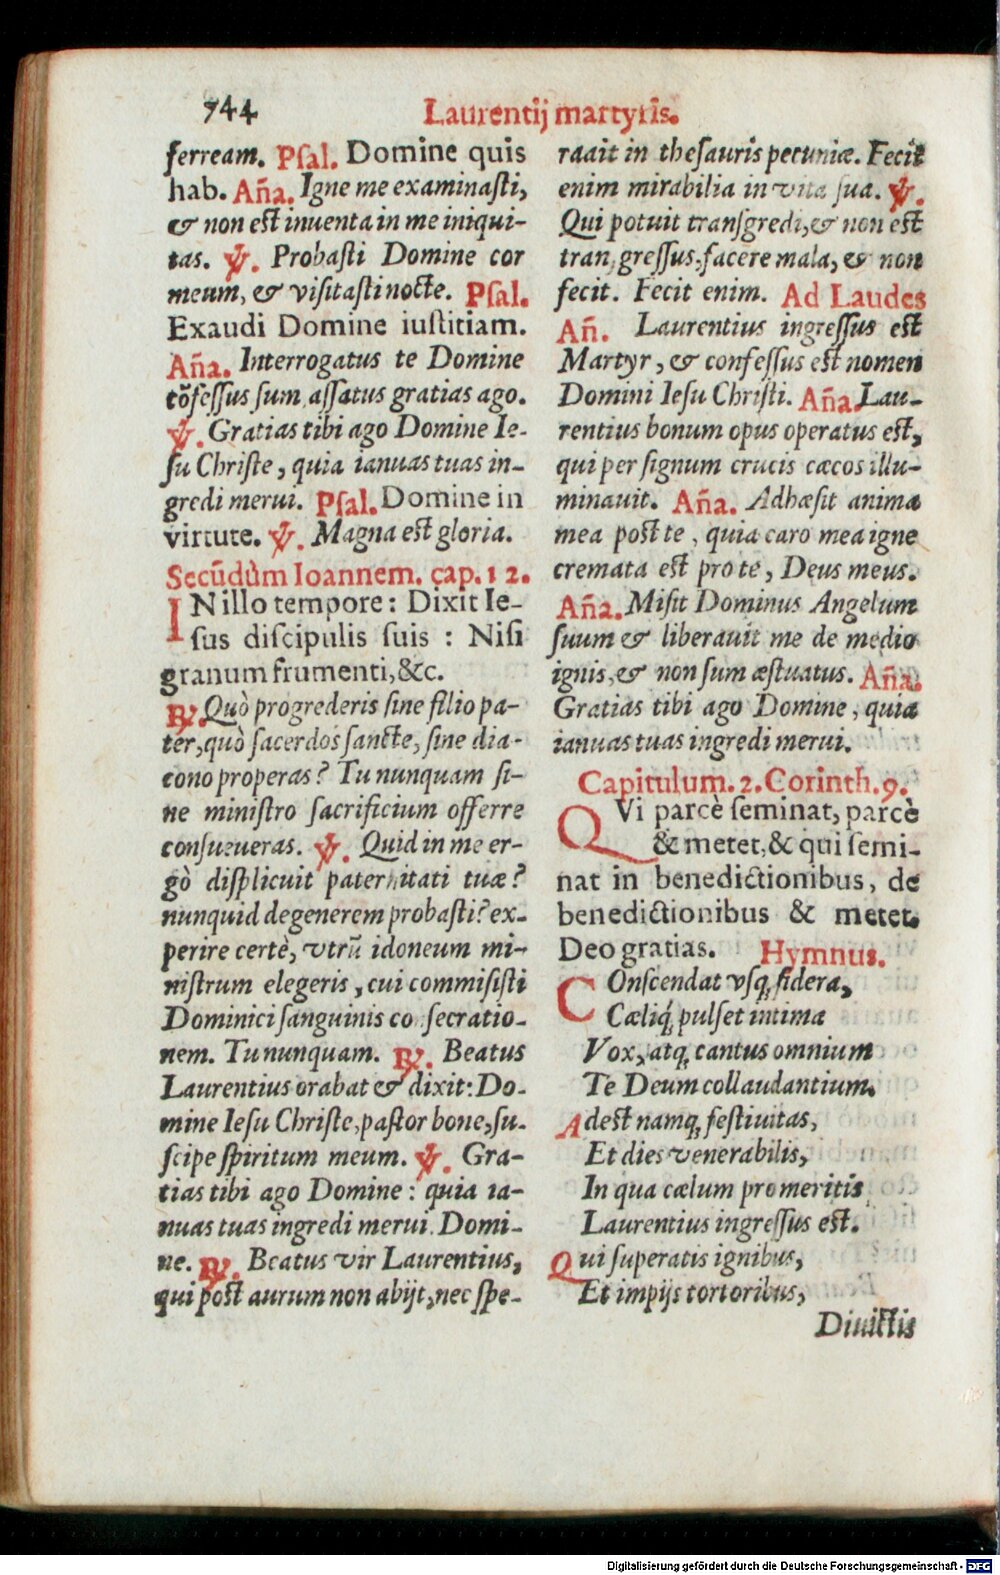 744
Laurentij martyris.
ferream. Psal. Domine quis
hab. Aña. Igne me examinasti,
& non est inuenta in me iniqui-
tas. ℣. Probasti Domine cor
meum, & visitasti nocte. Psal.
Exaudi Domine iustitiam.
Aña. Interrogatus te Domine
cõfessus sum, assatus gratias ago.
℣. Gratias tibi ago Domine Ie-
su Christe, quia ianuas tuas in-
gredi merui. Psal. Domine in
virtute. ℣. Magna est gloria.
Secũdùm Ioannem. cap. 12.
IN illo tempore: Dixit Ie-
sus discipulis suis: Nisi
granum frumenti, &c.
℟. Quò progrederis sine filio pa-
ter, quò sacerdos sancte, sine dia-
cono properas? Tu nunquam si-
ne ministro sacrificium offerre
consueueras. ℣. Quid in me er-
gò displicuit paternitati tuæ?
nunquid degenerem probasti? ex-
perire certè, vtrũ idoneum mi-
nistrum elegeris, cui commisisti
Dominici sanguinis co secratio-
nem. Tu nunquam. ℟. Beatus
Laurentius orabat & dixit: Do-
mine Iesu Christe, pastor bone, su-
scipe spiritum meum. ℣. Gra-
tias tibi ago Domine: quia ia-
nuas tuas ingredi merui. Domi-
ne. ℟. Beatus vir Laurentius,
qui post aurum non abijt, nec spe-
rauit in thesauris pecuniæ. Fecit
enim mirabilia in vita sua. ℣.
Qui potuit transgredi, & non est
transgressus, facere mala, & non
fecit. Fecit enim. Ad Laudes
Añ. Laurentius ingressus est
Martyr, & confessus est nomen
Domini Iesu Christi. Aña. Lau-
rentius bonum opus operatus est,
qui per signum crucis cæcos illu-
minauit. Aña. Adhæsit anima
mea post te, quia caro mea igne
cremata est pro te, Deus meus.
Aña. Misit Dominus Angelum
suum & liberauit me de medio
ignis, & non sum æstuatus. Aña.
Gratias tibi ago Domine, quia
ianuas tuas ingredi merui.
Capitulum. 2. Corinth. 9.
QVi parcè seminat, parcè
& metet, & qui semi-
nat in benedictionibus, de
benedictionibus & metet.
Deo gratias. Hymnus.
COnscendat vsq; sidera,
Cæliq́; pulset intima
Vox, atq; cantus omnium
Te Deum collaudantium.
Adest namq; festiuitas,
Et dies venerabilis,
In qua cælum pro meritis
Laurentius ingressus est.
Qui superatis ignibus,
Et impijs tortoribus,
Diuictis
Digitalisierung gefördert durch die Deutsche Forschungsgemeinschaft - DFG